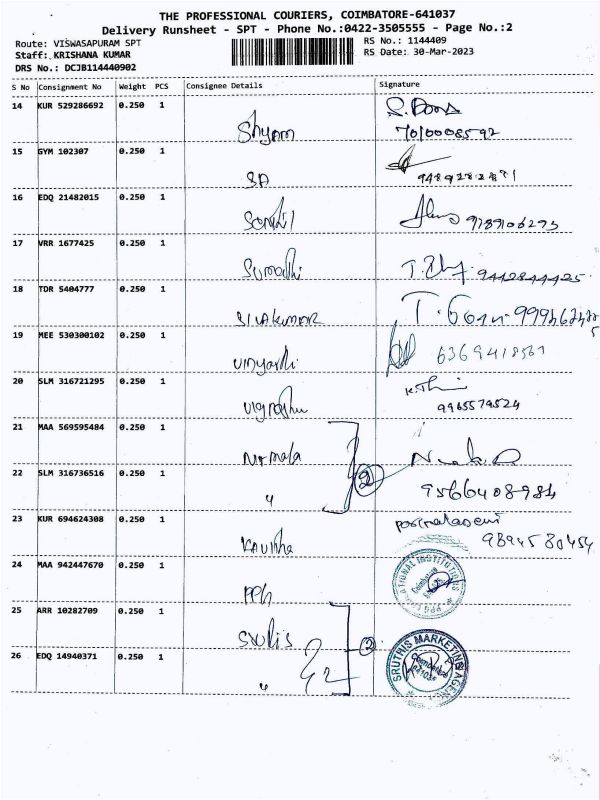 THE PROFESSIONAL COURIERS, COIMBATORE-641037
Delivery Runsheet - SPT - Phone No.:0422-3505555 - Page No.:2
Route: VISWASAPURAM SPT
RS No.: 1144409
Staff: KRISHANA KUMAR
RS Date: 30-Mar-2023
DRS No.: DCJB114440902
S No Consignment No Weight PCS Consignee Details Signature
14 KUR 529286692 0.250 1
Shyam
7010008592
15 GYM 102307 0.250 1
SA
16 EDQ 21482015 0.250 1
Senthil
9789106293
17 VRR 1677425 0.250 1
Sumathi
18 TDR 5404777 0.250 1
SIVAKUMAR
19 MEE 530300102 0.250 1
6369418561
20 SLM 316721295 0.250 1
9965579524
21 MAA 569595484 0.250 1
Nirmala
2
22 SLM 316736516 0.250 1
"
9566408984
23 KUR 694624308 0.250 1
Kavitha
9894580454
24 MAA 942447670 0.250 1
PPG
25 ARR 10282709 0.250 1
2
SRUTHIS MARKETING AGENCY
26 EDQ 14940371 0.250 1
"